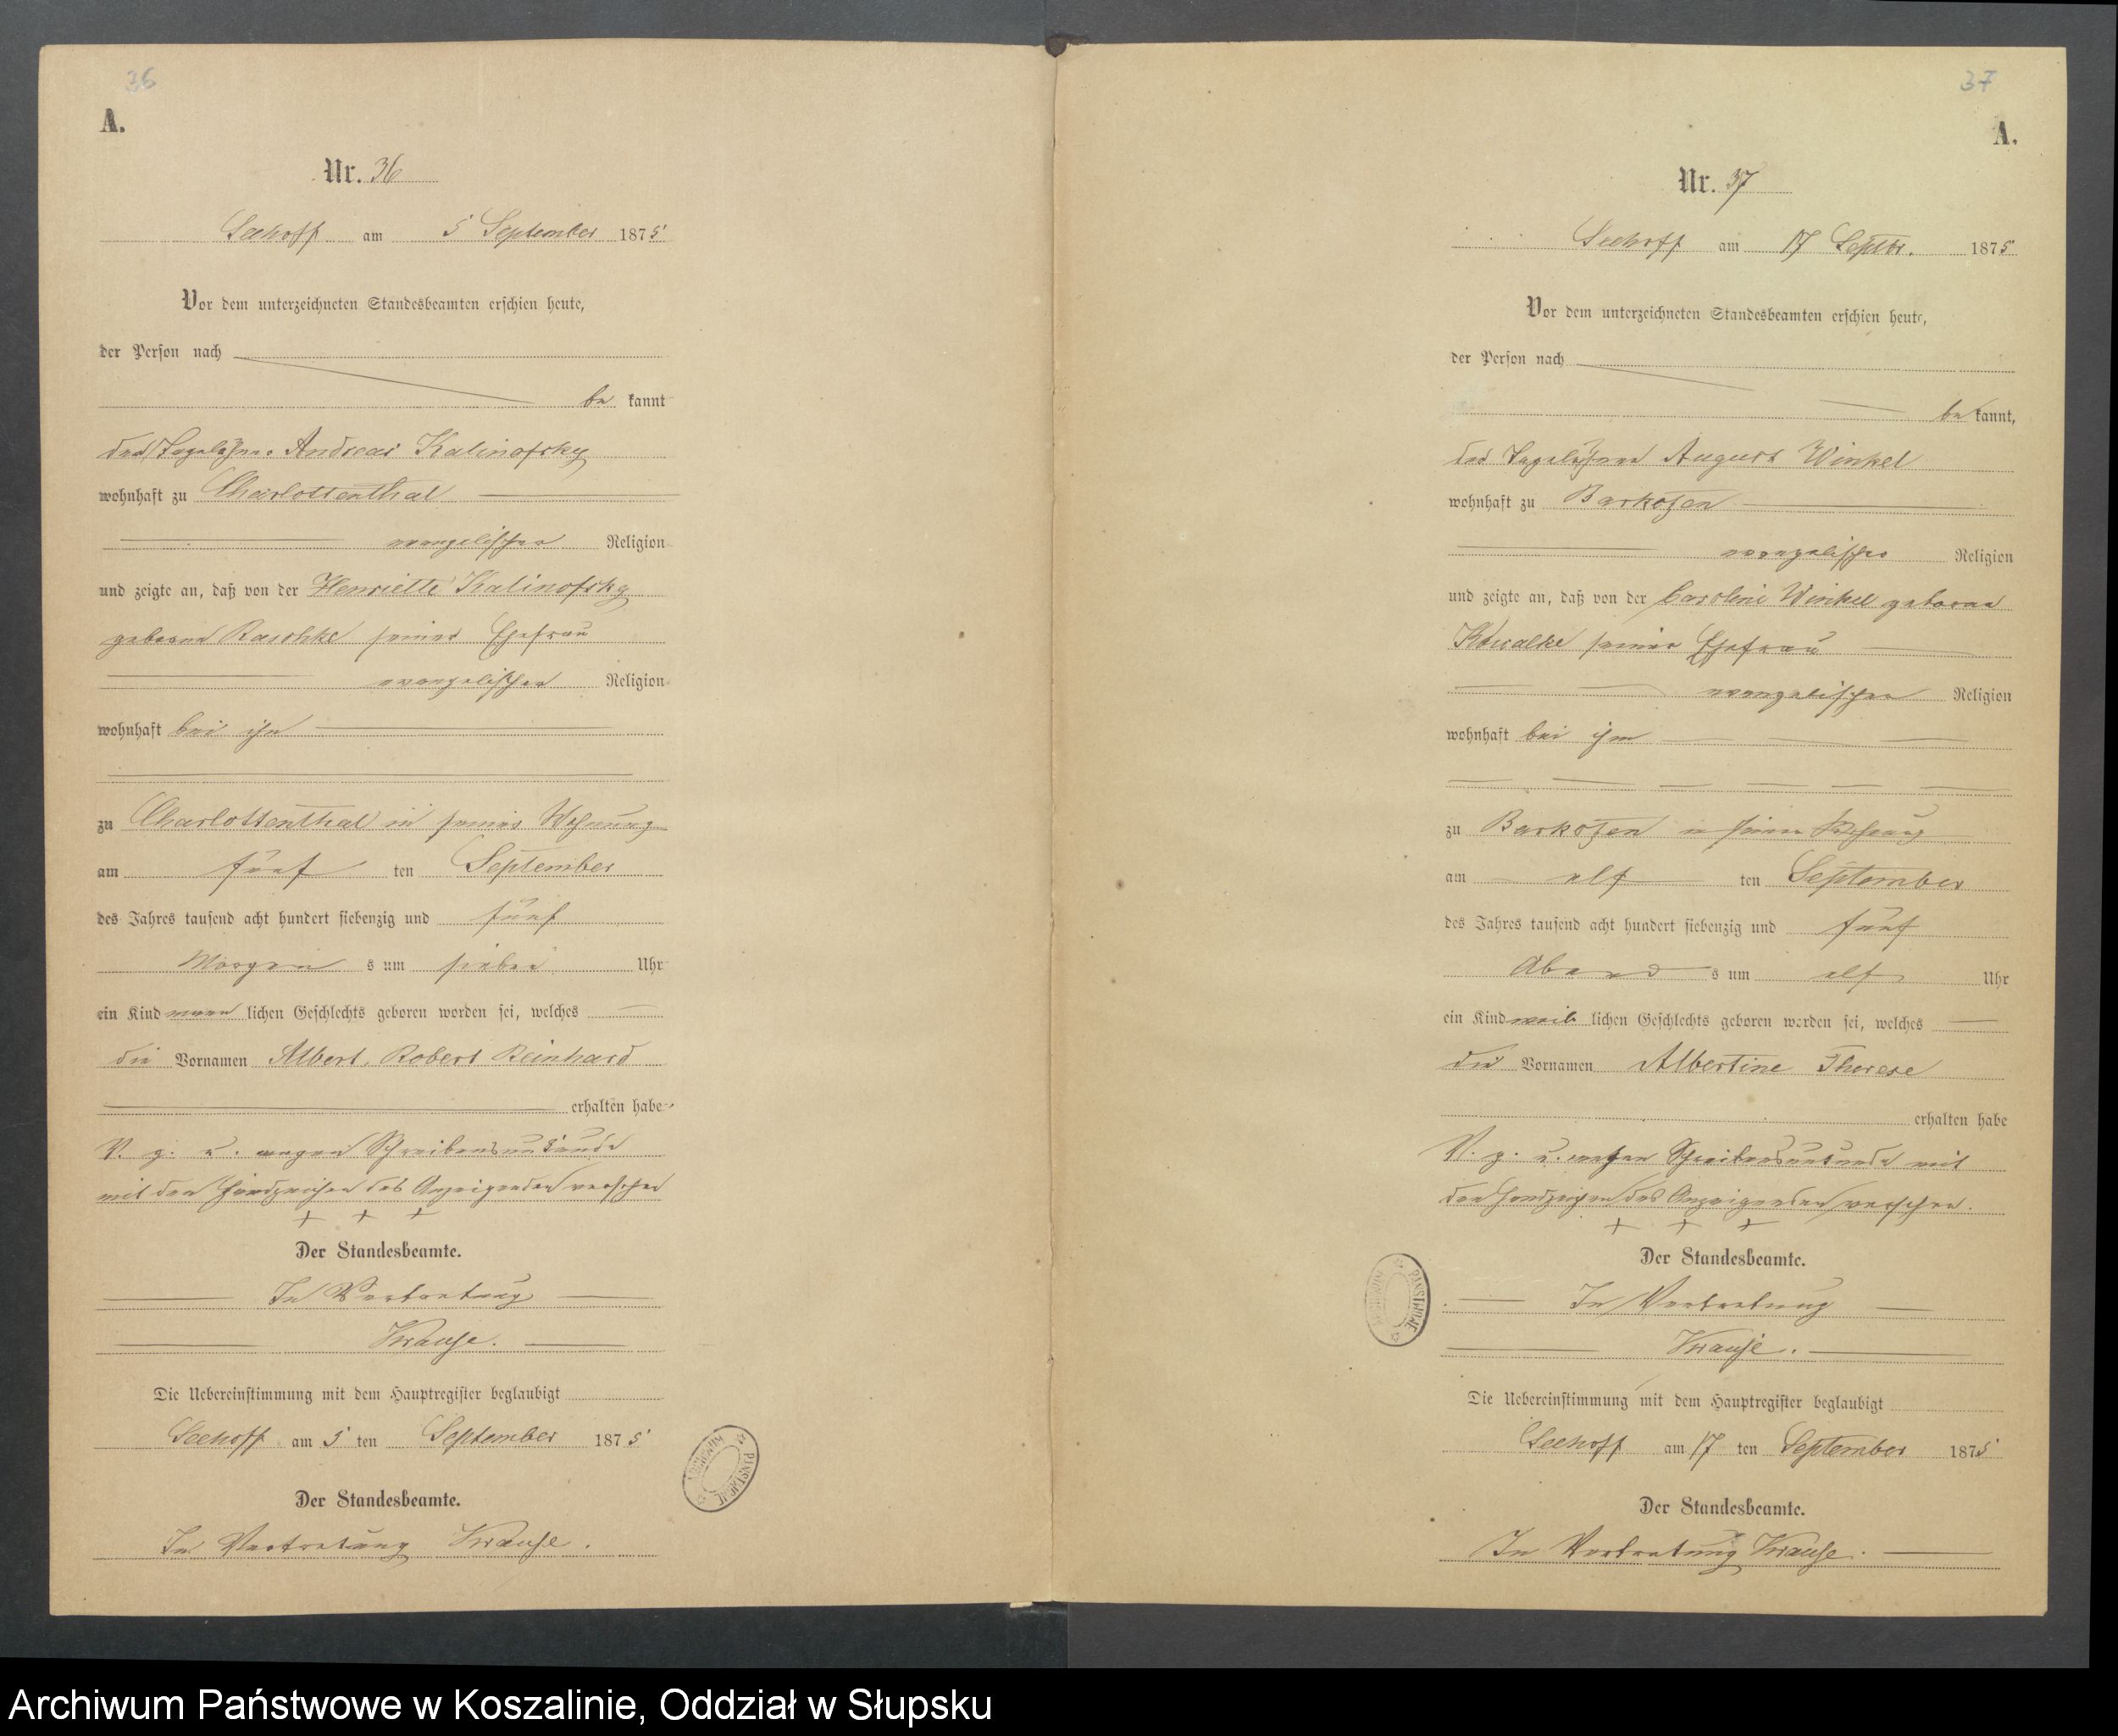 36
A.
Nr. 36
Seehoff am 5 September 1875
Vor dem unterzeichneten Standesbeamten erschien heute,
der Person nach
be kannt
der Tagelöhner Andreas Kalinofsky
wohnhaft zu Charlottenthal
evangelischer Religion
und zeigte an, daß von der Henriette Kalinofsky
geborne Raschke seiner Ehefrau
evangelischer Religion
wohnhaft bei ihm
zu Charlottenthal in seiner Wohnung
am fünf ten September
des Jahres tausend acht hundert siebenzig und fünf
Morgen s um sieben Uhr
ein Kind männ lichen Geschlechts geboren worden sei, welches
die Vornamen Albert, Robert Reinhard
erhalten habe
V. g. u. wegen Schreibensunkunde
mit den Handzeichen des Anzeigenden versehen
+ + +
Der Standesbeamte.
In Vertretung
Krause.
Die Uebereinstimmung mit dem Hauptregister beglaubigt
Seehoff am 5 ten September 1875
Der Standesbeamte.
In Vertretung Krause.
ARCHIWUM PAŃSTWOWE
37
A.
Nr. 37
Seehoff am 17 Septbr. 1875
Vor dem unterzeichneten Standesbeamten erschien heute,
der Person nach
be kannt,
der Tagelöhner August Winkel
wohnhaft zu Barkotzen
evangelischer Religion
und zeigte an, daß von der Caroline Winkel geborne
Kowalke seiner Ehefrau
evangelischer Religion
wohnhaft bei ihm
zu Barkotzen in seiner Wohnung
am elf ten September
des Jahres tausend acht hundert siebenzig und fünf
Abend s um elf Uhr
ein Kind weib lichen Geschlechts geboren worden sei, welches
die Vornamen Albertine Therese
erhalten habe
V. g. u. wegen Schreibensunkunde mit
den Handzeichen des Anzeigenden versehen.
+ + +
Der Standesbeamte.
In Vertretung
Krause.
Die Uebereinstimmung mit dem Hauptregister beglaubigt
Seehoff am 17 ten September 1875
Der Standesbeamte.
In Vertretung Krause.
ARCHIWUM PAŃSTWOWE
Archiwum Państwowe w Koszalinie, Oddział w Słupsku